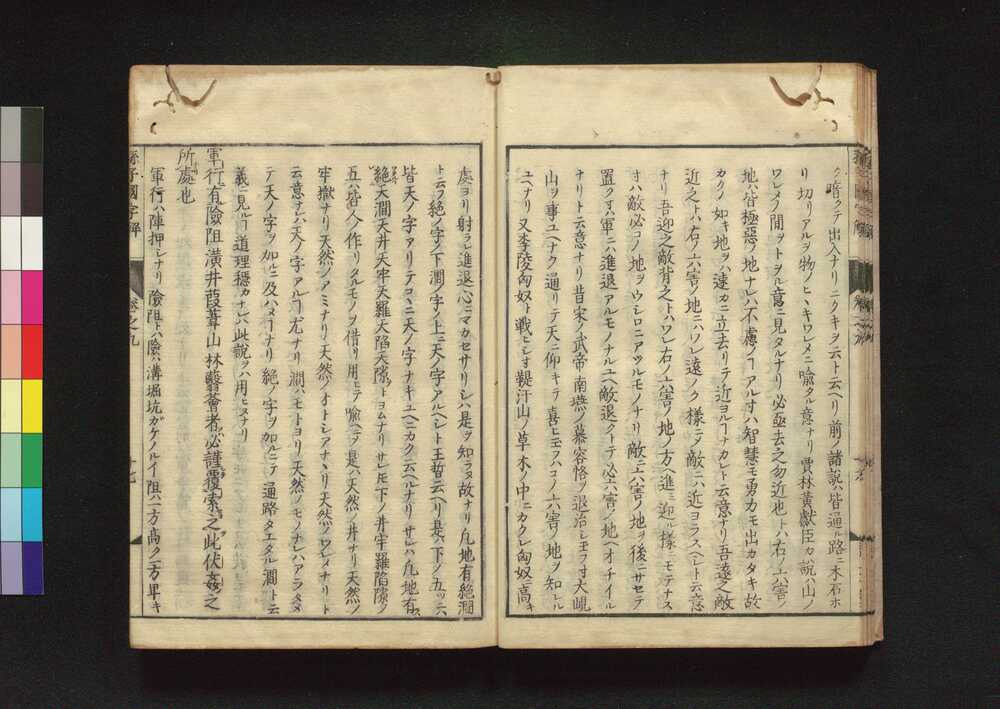 ク暗クテ出入ナリニクキヲ云ト云ヘリ前ノ諸説ハ皆通ル路ニ木石ホ
リ切リアルヲ物ノヒヽキワレメニ喩タル意ナリ賈林黄獻臣カ説ハ山ノ
ワレメノ間ヲトヲル意ニ見タルナリ必亟去之勿近也トハ右ノ六害ノ
地ハ皆極惡ノ地ナレハ不慮ノヿアルオハ智慧モ勇力モ出カタキ故
カクノ如キ地ヲハ速カニ立去リテ近ヨルヿナカレト云意ナリ吾遠之敵
近之トハ右ノ六害ノ地ニハワレ遠ノク様ニメ敵ニハ近ヨラスヘレト云意
ナリ吾迎之敵背之トハワレ右ノ六害ノ地ノ方ヘ進ミ迎ル様ニモテナス
オハ敵必コノ地ヲウシロニアツルモノナリ敵ニ六害ノ地ヲ後ニサセテ
置クオハ軍ニハ進退アルモノナルユヘ敵退クトテ必六害ノ地ヘオチイル
ナリト云意ナリ昔宋ノ武帝南燕ノ慕容恪ヲ退治シ玉フ寸大峴
山ヲ事ユヘナク通リテ天ニ仰キテ喜ヒ玉フハコノ六害ノ地ヲ知レル
ユヘナリ又李陵匈奴ト戰ヒシオ鞮汗山ノ草木ノ中ニカクレ匈奴ニ高キ
處ヨリ射ラレ進退心ニマカセサリシハ是ヲ知ラヌ故ナリ凡地有絶澗
ト云フ絶ノ字ノ下澗ノ字ノ上ニ天ノ字アルヘシト王晳云ヘリ是ハ下ノ五ツニハ
皆天ノ字アリテコヽニ天ノ字ナキユヘニカク云ヘルナリサレハ凡地有
絶天澗天井天牢天羅天陷天隙トヨムナリサレ𪜈下ノ井牢羅陷隙ノ
五ハ皆人ノ作リタルモノヲ借リ用ヒテ喩ヘテ是ハ天然ノ井ナリ天然ノ
牢獄ナリ天然ノアミナリ天然ノオトシアナヽリ天然ノワレメナリト
云意ナレハ天ノ字アルヿ尤ナリ澗ハモトヨリ天然ノモノナレハアラタメ
テ天ノ字ヲ加ルニ及ハヌヿナリ絶ノ字ヲ加ルニテ通路タエタル澗ト云
義ニ見ルヿ道理穩カナレハ此説ヲハ用ヒヌナリ
軍行有險阻潢井葭葦山林蘙薈者必謹覆索之此伏姦之
所處也
軍行ハ陣押シナリ險阻トハ險ハ溝堀坑ガケノルイ阻ハ一方高ク一方卑キ
孫子國字解 卷之九